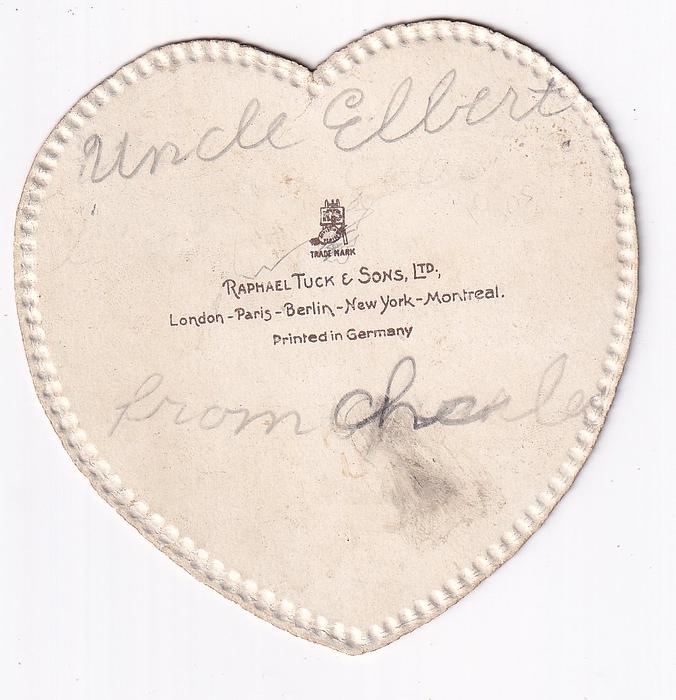 Uncle Elbert
TRADE MARK
RAPHAEL TUCK & SONS, LTD.,
London - Paris - Berlin - New York - Montreal.
Printed in Germany
from Charles